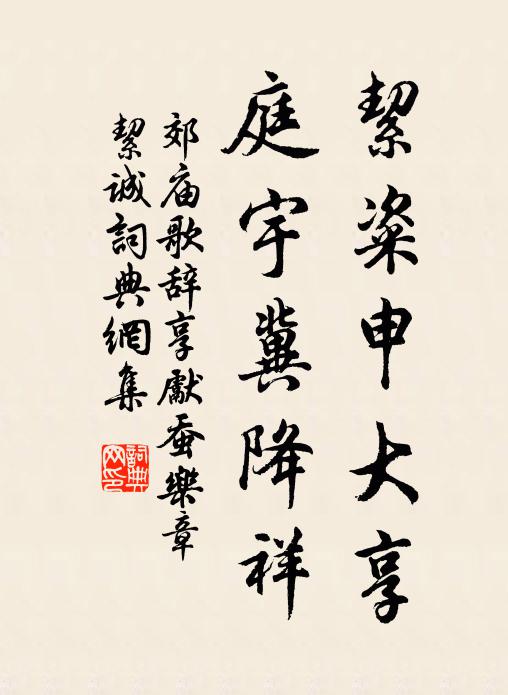 絜粢申大享
庭宇冀降祥
郊庙歌辞享獻蚕樂章
絜诚詞典網集
詞典网印